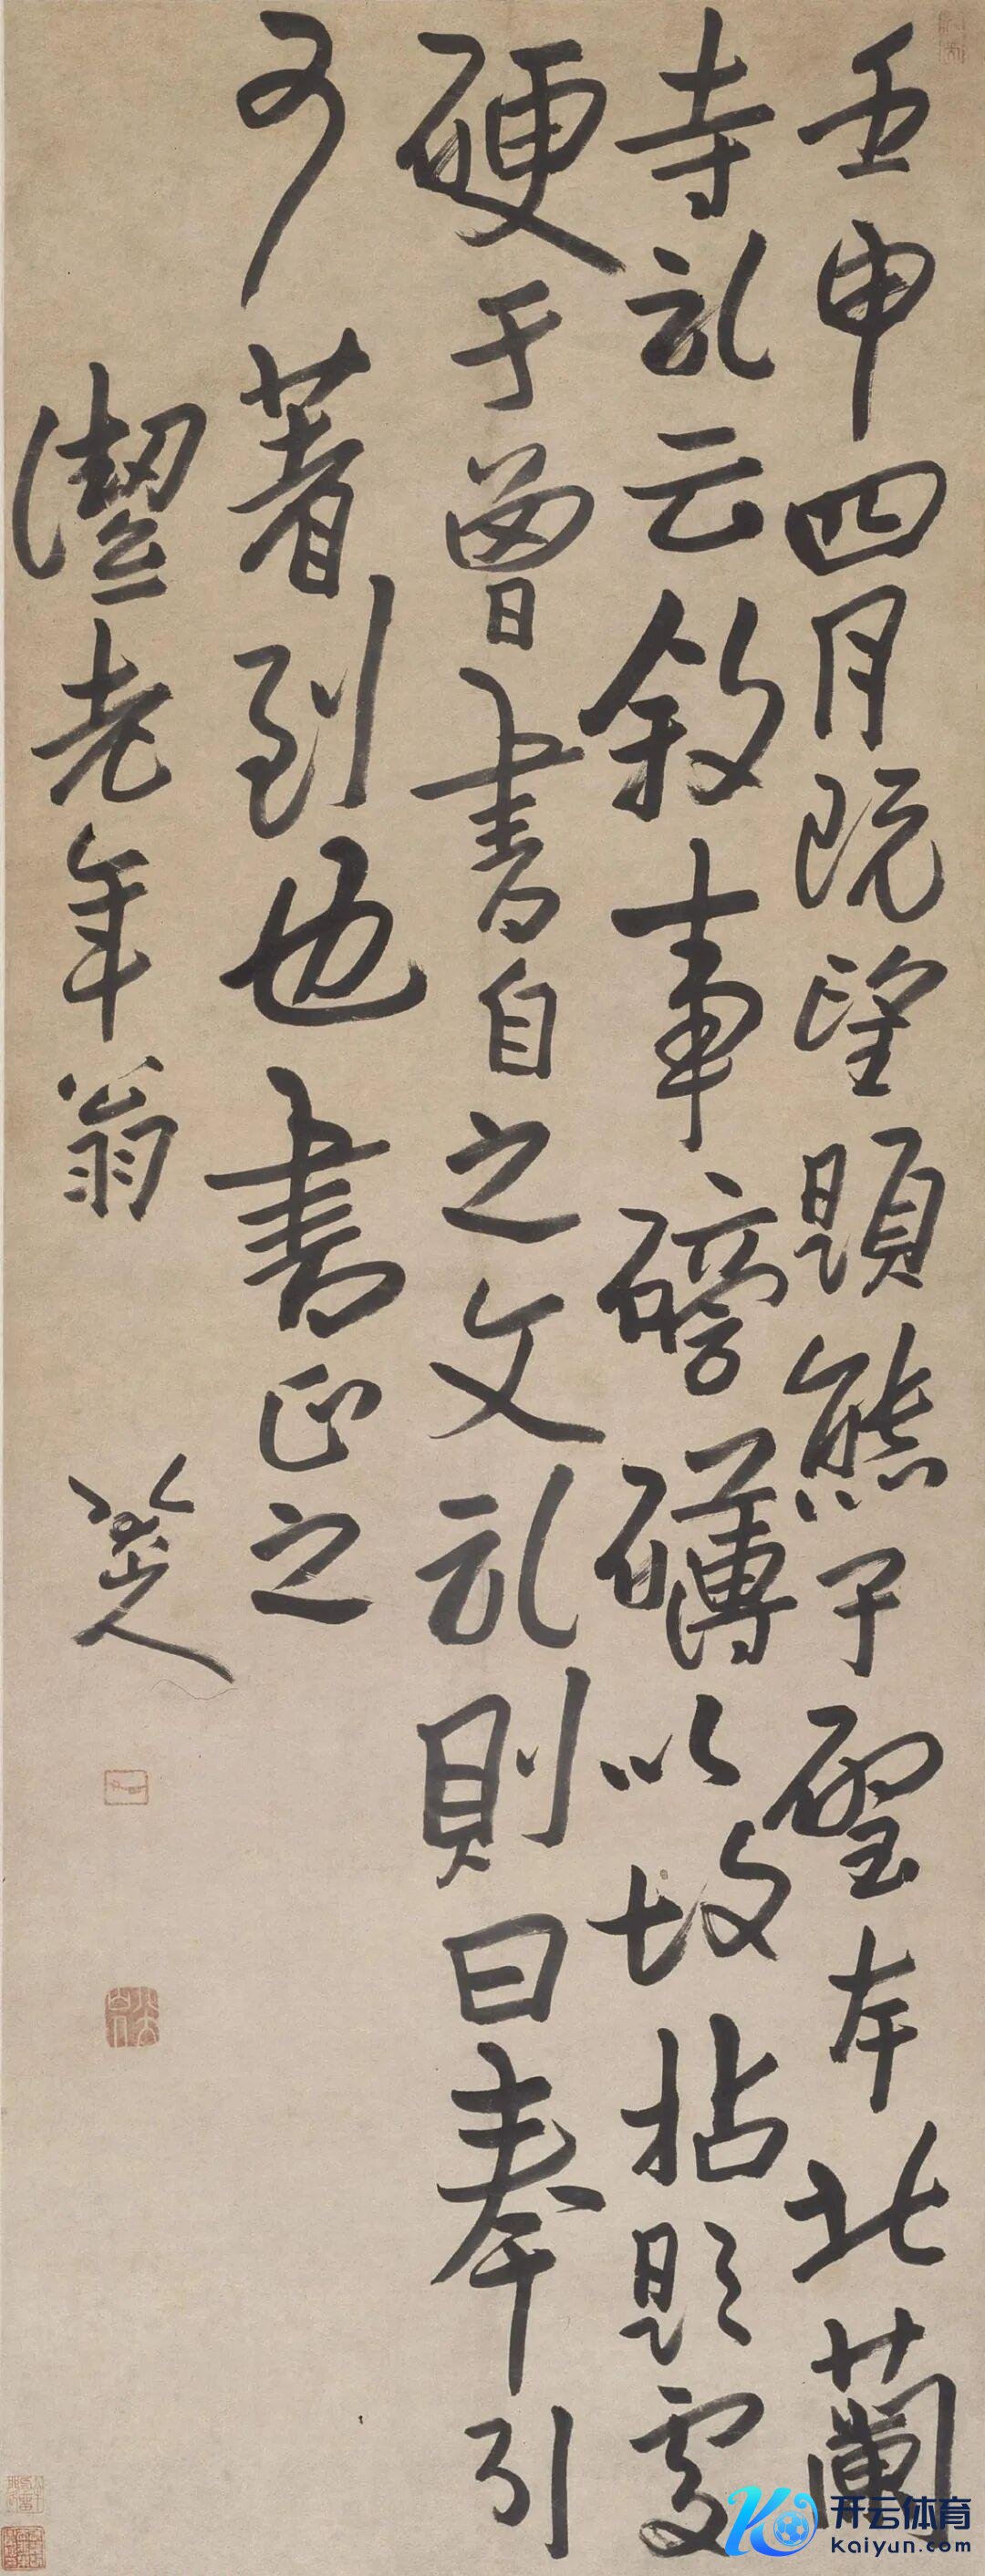 壬申四月既望題熊子聖本北蘭
寺記云敘事磅礴以故拈題處
硬于曾書自之文記則曰奉引
可著到也書正之
澹老年翁
八大山人
开云体育
kaiyun.com